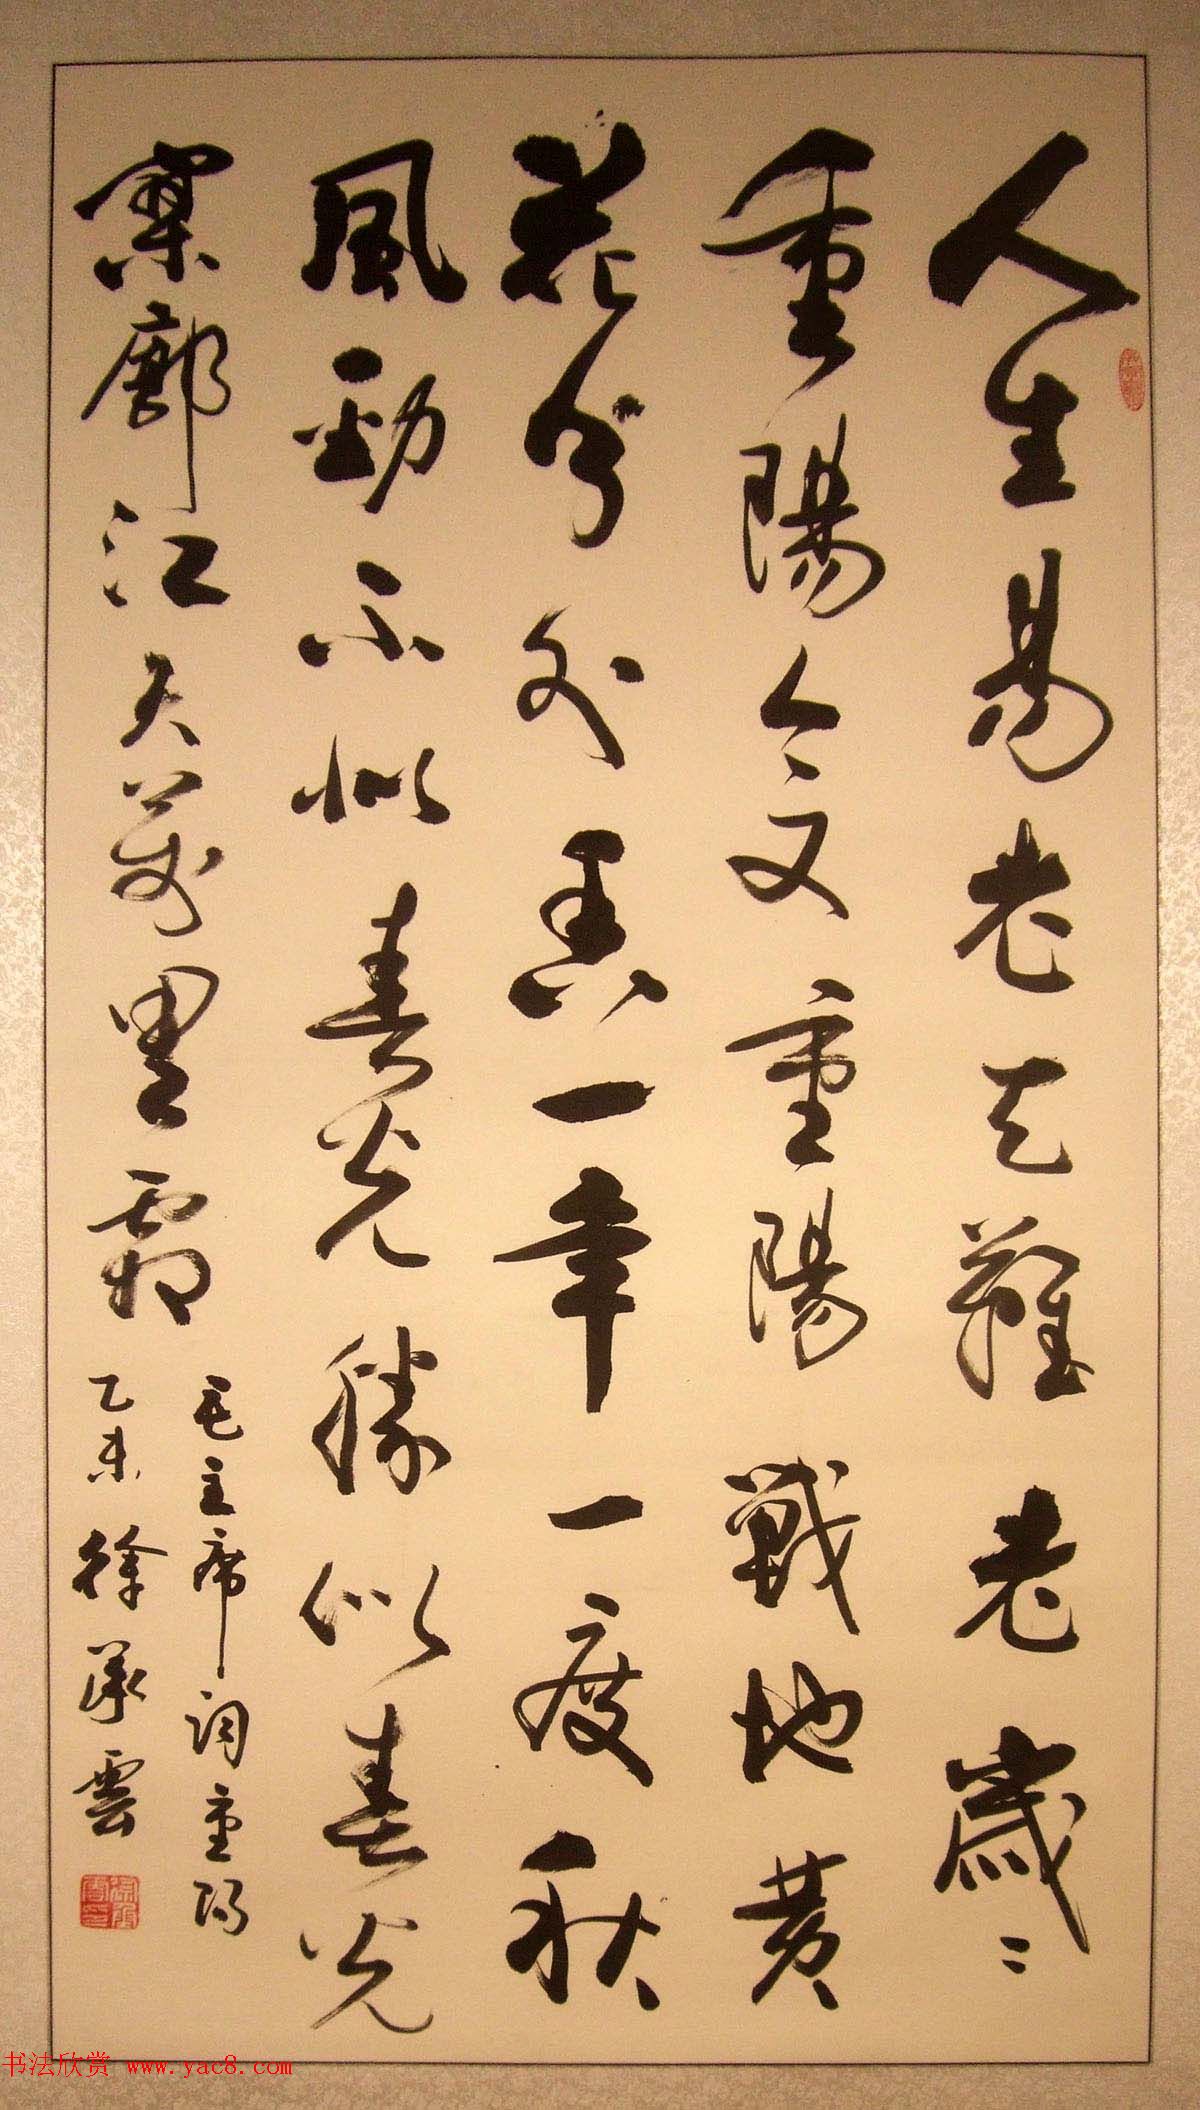 人生易老天難老歲〻
重陽今又重陽戰地黃
花分外香一年一度秋
風勁不似春光勝似春光
寥廓江天萬里霜
毛主席詞重陽
乙未徐承雲
书法欣赏 www.yac8.com